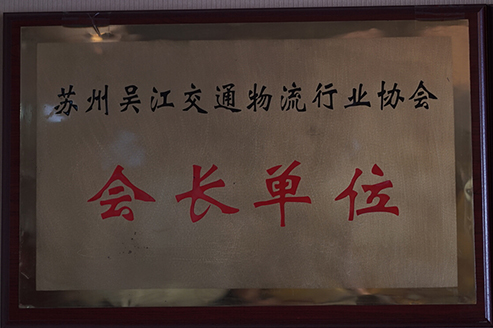 苏州吴江交通物流行业协会
会长单位